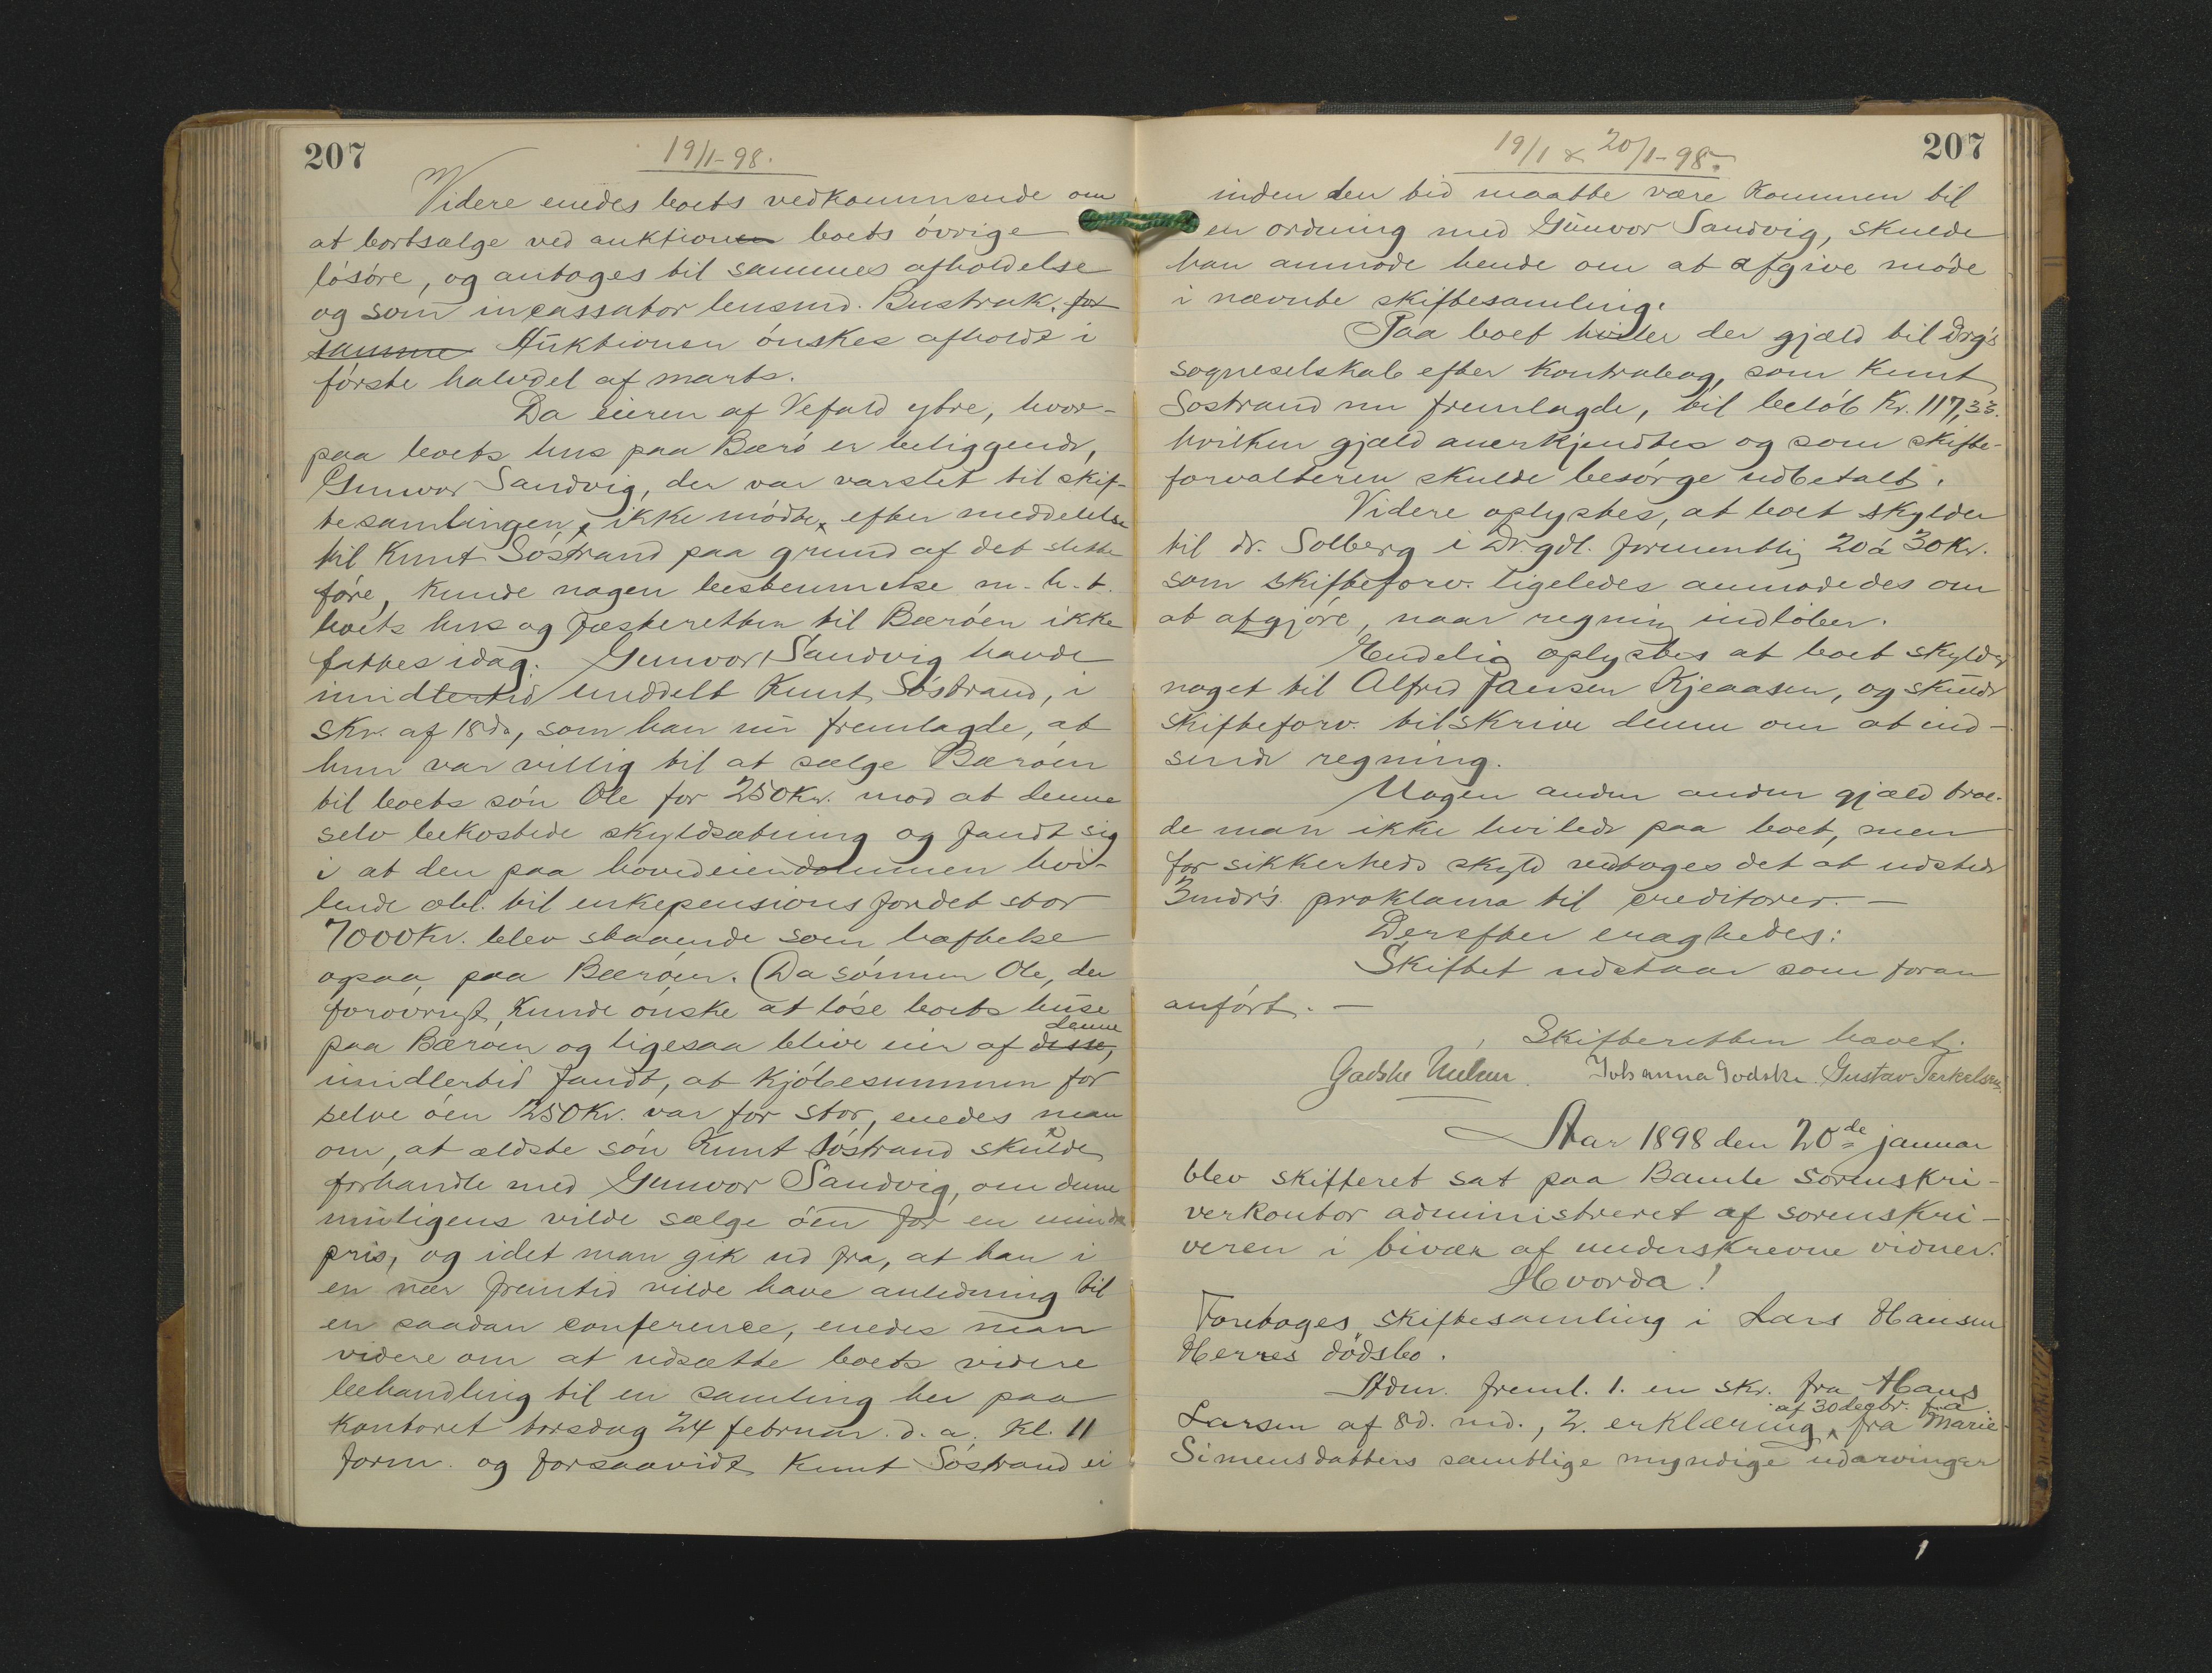 207
19/1-98.
Videre enedes boets vedkommende om
at bortsælge ved auktionen boets övrige
lösöre, og antoges til sammes afholdelse
og som incassator lensmd. Bustrak. for
samme Auktionen önskes afholdt i
förste halvdel af marts.
Da eieren af Vefald ytre, hvor-
paa boets hus paa Bærö er beliggende,
Gunvor Sandvig, der var varslet til skif-
tesamlingen, ikke mödte, efter meddelelse
til Knut Söstrand paa grund af det slette
före, kunde nogen bestemmelse m. h. t.
boets hus og fæsteretten til Bæröen ikke
fattes idag. Gunvor Sandvig havde
imidlertid meddelt Knut Söstrand, i
skr. af 18ds, som han nu fremlagde, at
hun var villig til at sælge Bæröen
til boets sön Ole for 250 Kr. mod at denne
selv bekostede skyldsætning og fandt sig
i at den paa hovedeiendommen hvi-
lende obl. til enkepensionsfondet stor
7000 Kr. blev staaende som heftelse
ogsaa paa Bæröen. (Da sönnen Ole, der
forövrigt, kunde önske at löse boets huse
denne
paa Bæröen og ligesaa blive eier af disse,
imidlertid fandt, at kjöbesummen for
selve öen 250 Kr. var for stor, enedes man
om, at ældste sön Knut Söstrand skulde
forhandle med Gunvor Sandvig, om denne
muligens vilde sælge öen for en mindre
pris, og idet man gik ud fra, at han i
en nær fremtid vilde have anledning til
en saadan conference, enedes man
videre om at udsætte boets videre
behandling til en samling her paa
kontoret torsdag 24 februar d. a. Kl. 11
form. og forsaavidt Knut Söstrand ei
19/1 & 20/1-98.
207
inden den tid maatte være kommen til
en ordning med Gunvor Sandvig, skulde
han anmode hende om at afgive möde
i nævnte skiftesamling.
Paa boet hviler der gjæld til Drg's
sogneselskab efter Kontrabog, som Knut
Sostrand nu fremlagde, til belöb Kr. 117,33.
hvilken gjæld anerkjendtes og som skifte-
forvalteren skulde besörge udbetalt.
Videre oplystes, at boet skylder
til dr. Solberg i Drgdl. formentlig 20 à 30 Kr.
som skifteforv. ligeledes anmodedes om
at afgjöre, naar regning indlöber.
Endelig oplystes at boet skylder
noget til Alfred Jansen Kjeaasen, og skulde
skifteforv. tilskrive denne om at ind-
sende regning.
Nogen anden anden gjæld troe-
de man ikke hvilede paa boet, men
for sikkerheds skyld vedtoges det at udstede
3mdr's proklama til creditorer. —
Derefter eragtedes:
Skiftet udstaar som foran
anfört. —
Skifteretten hævet.
Godske Nielsen. Johanna Godske. Gustav Terkelsen.
Aar 1898 den 20de januar
blev skifteret sat paa Bamle sorenskri-
verkontor administreret af sorenskri-
veren i bivær af underskrevne vidner.
Hvorda!
Foretoges skiftesamling i Lars Hansen
Herres dödsbo.
Adm. freml. 1. en skr. fra Hans
af 30 decbr. f. a.
Larsen af 8d. md., 2. erklæring fra Marie
Simensdatters samtlige myndige udarvinger